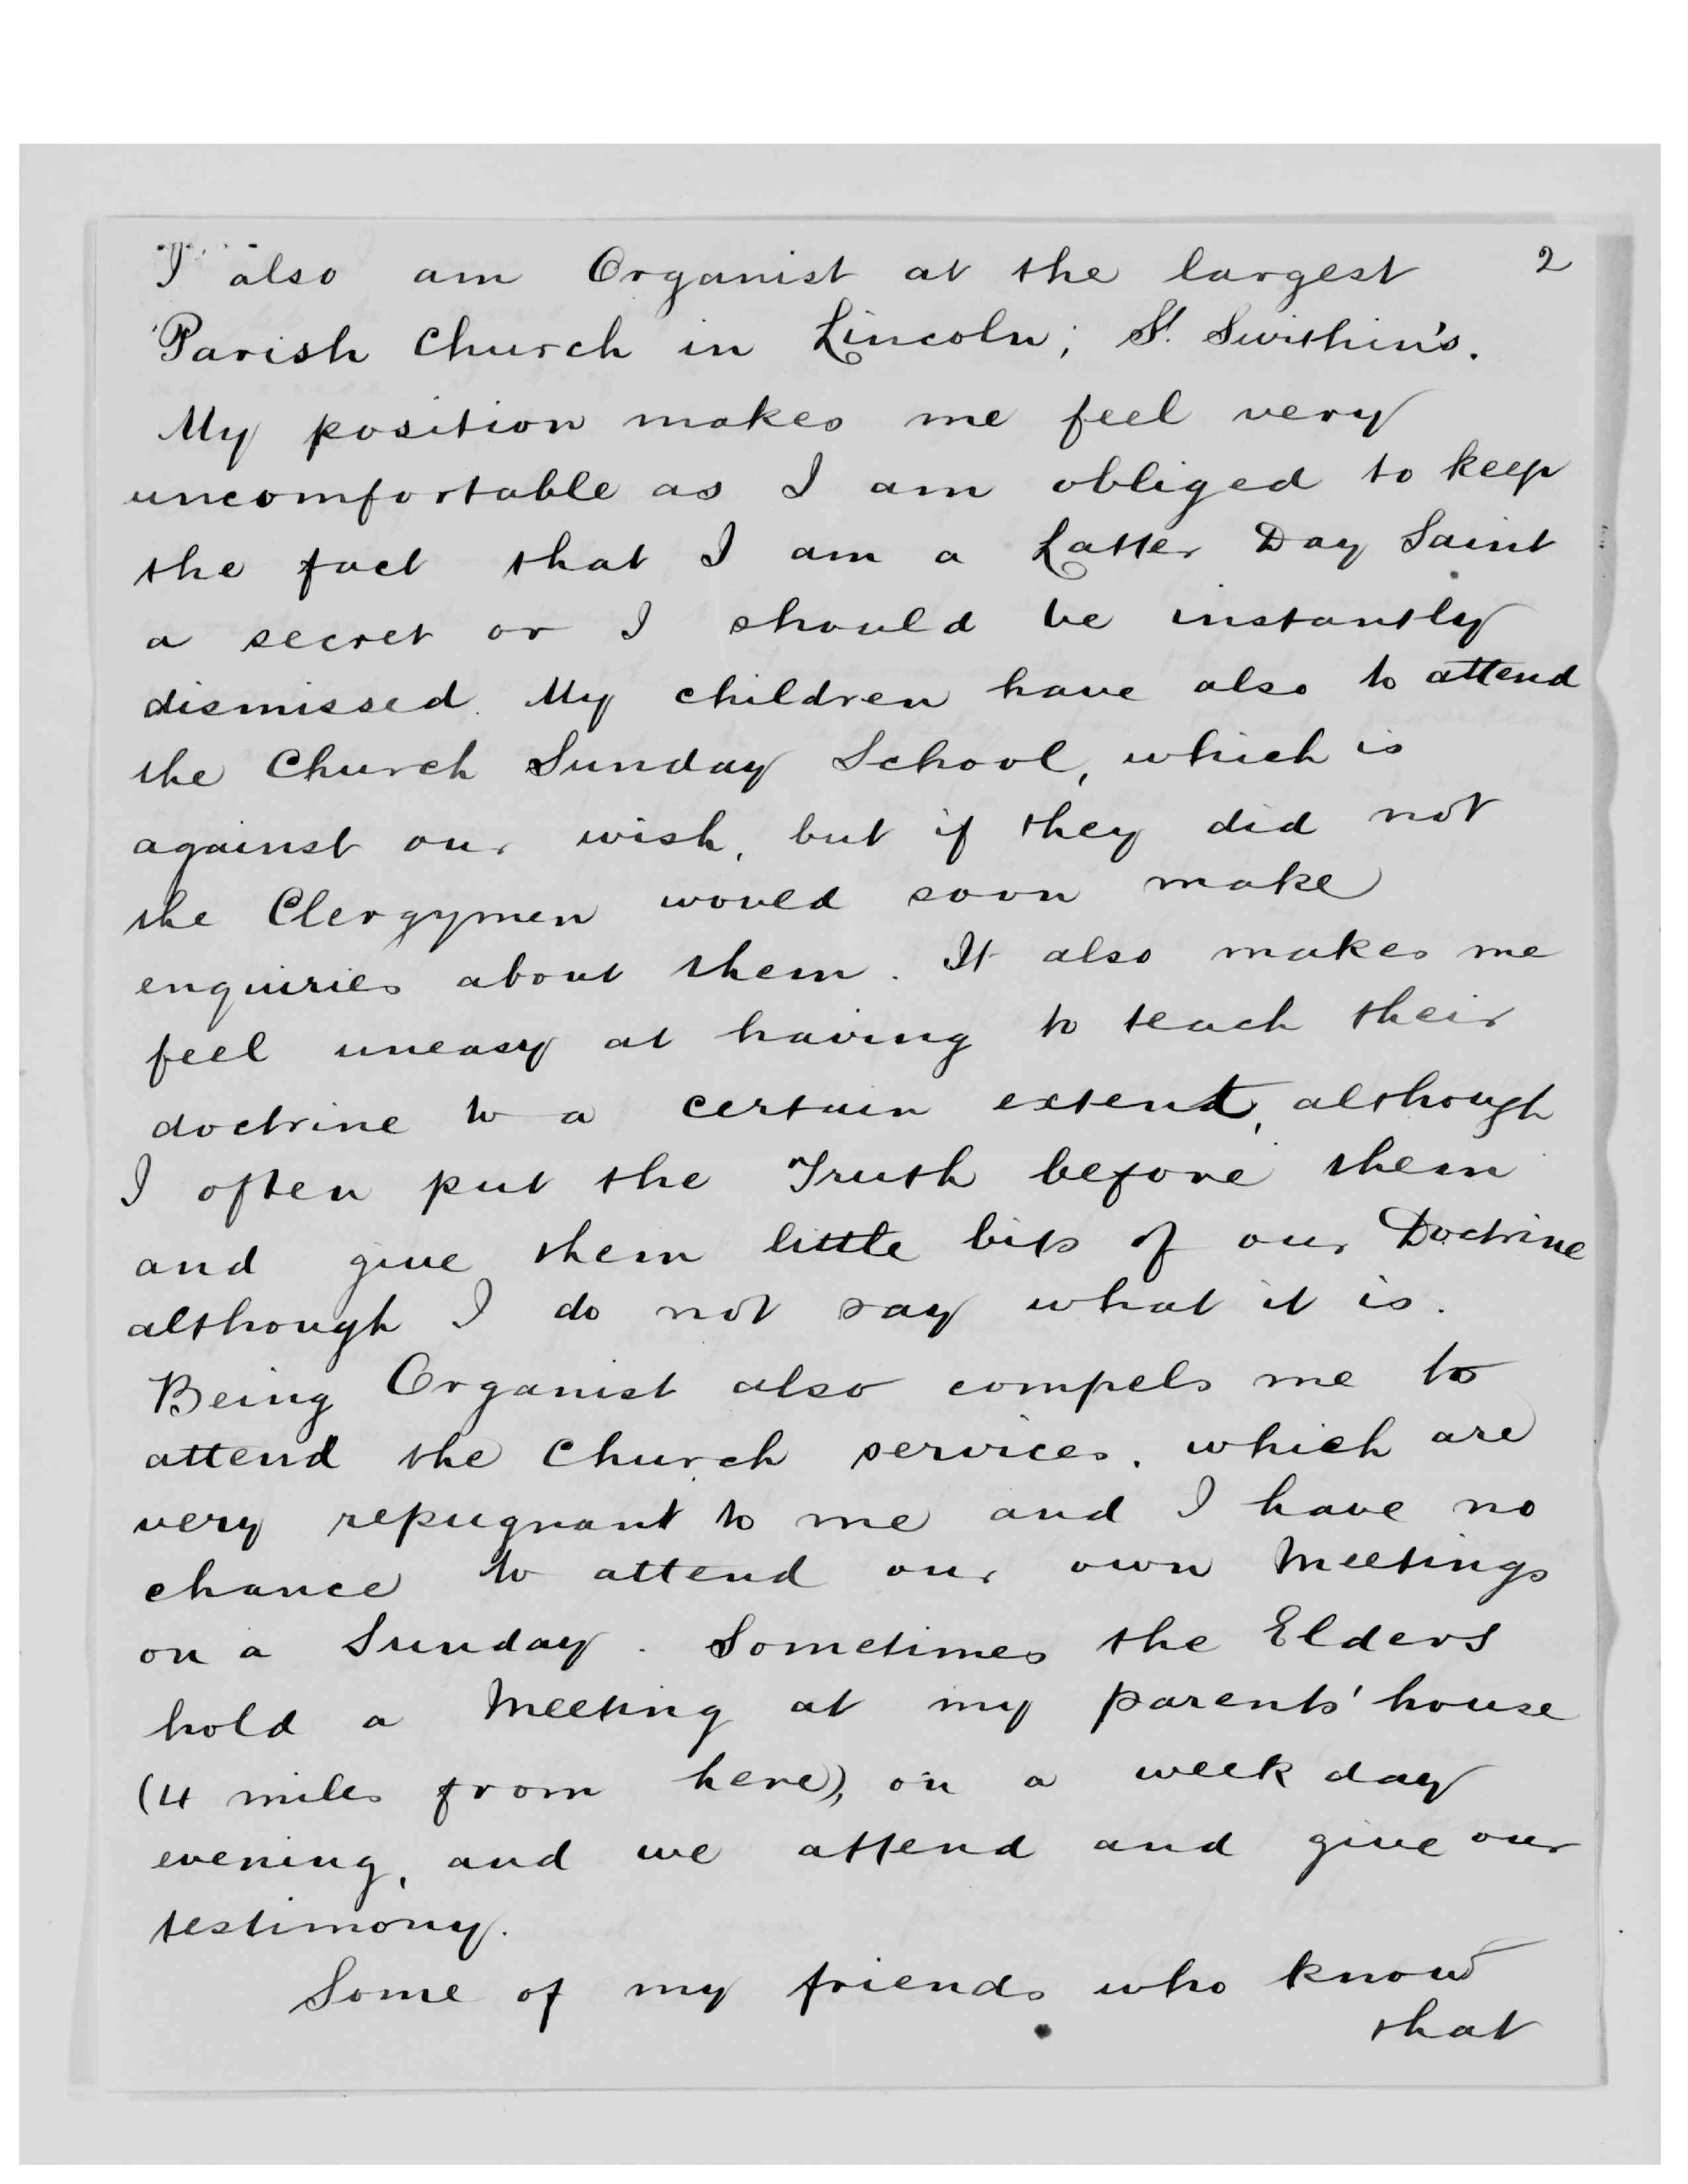 I also am Organist at the largest 2
Parish Church in Lincoln; St. Swithin's.
My position makes me feel very
uncomfortable as I am obliged to keep
the fact that I am a Latter Day Saint
a secret or I should be instantly
dismissed. My children have also to attend
the Church Sunday School, which is
against our wish, but if they did not
the Clergymen would soon make
enquiries about them. It also makes me
feel uneasy at having to teach their
doctrine to a certain extent, although
I often put the Truth before them
and give them little bits of our Doctrine
although I do not say what it is.
Being Organist also compels me to
attend the Church services, which are
very repugnant to me and I have no
chance to attend our own Meetings
on a Sunday. Sometimes the Elders
hold a Meeting at my parents' house
(4 miles from here), on a week day
evening, and we attend and give our
testimony.
Some of my friends who know
that